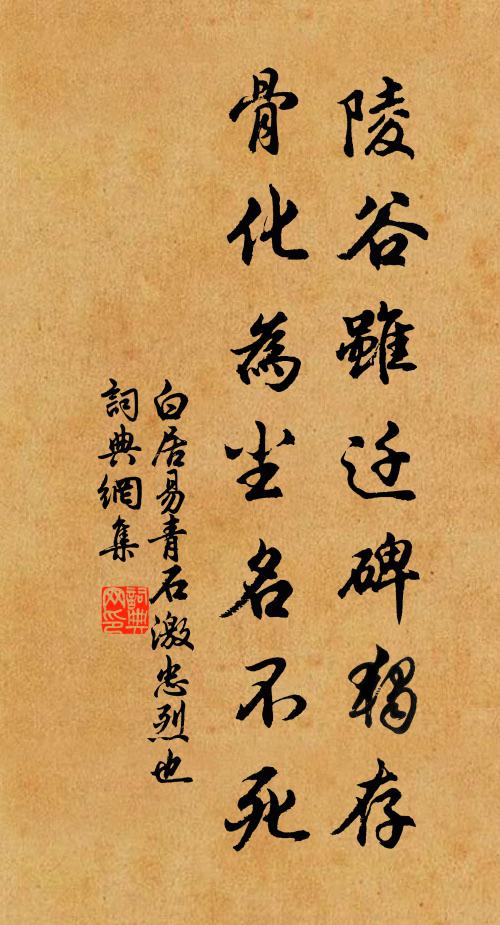 陵谷雖迁碑獨存
骨化為尘名不死
白居易青石激忠烈也
詞典網集
詞典
网印